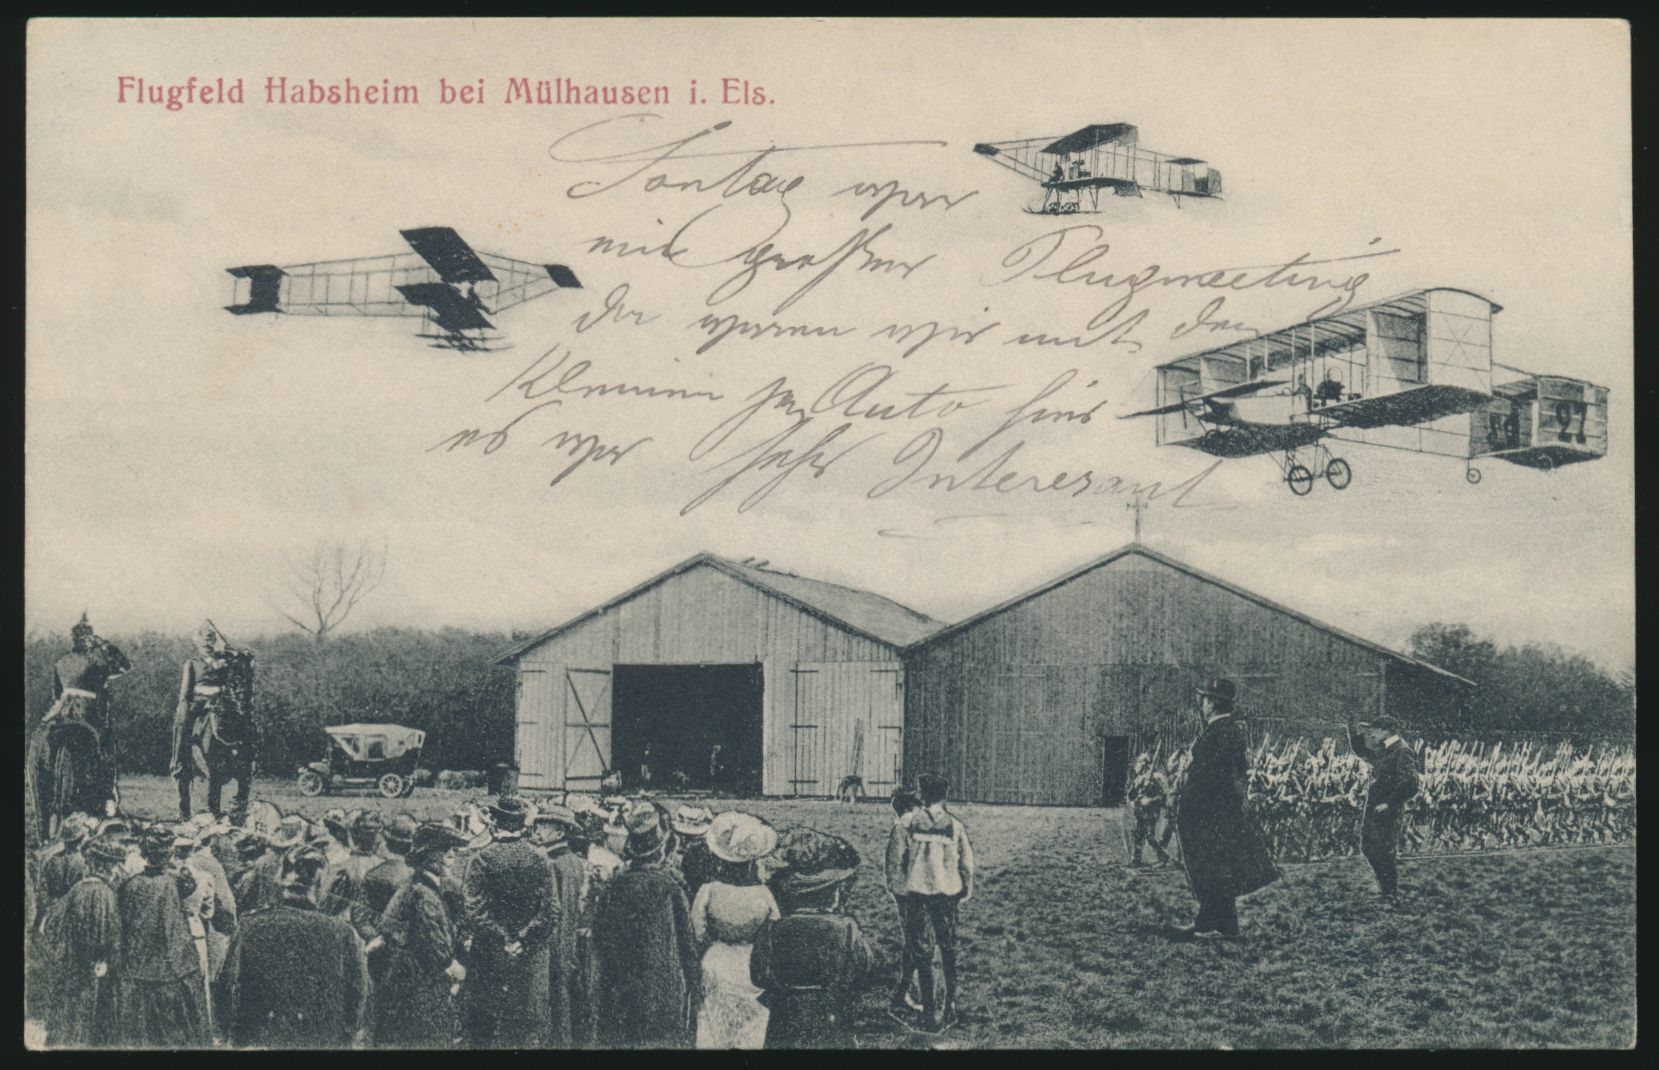 Flugfeld Habsheim bei Mülhausen i. Els.
Sontag war
mit großer Flugmeeting
da waren wir mit den
Kleinen per Auto hier
es war sehr Interesant
27